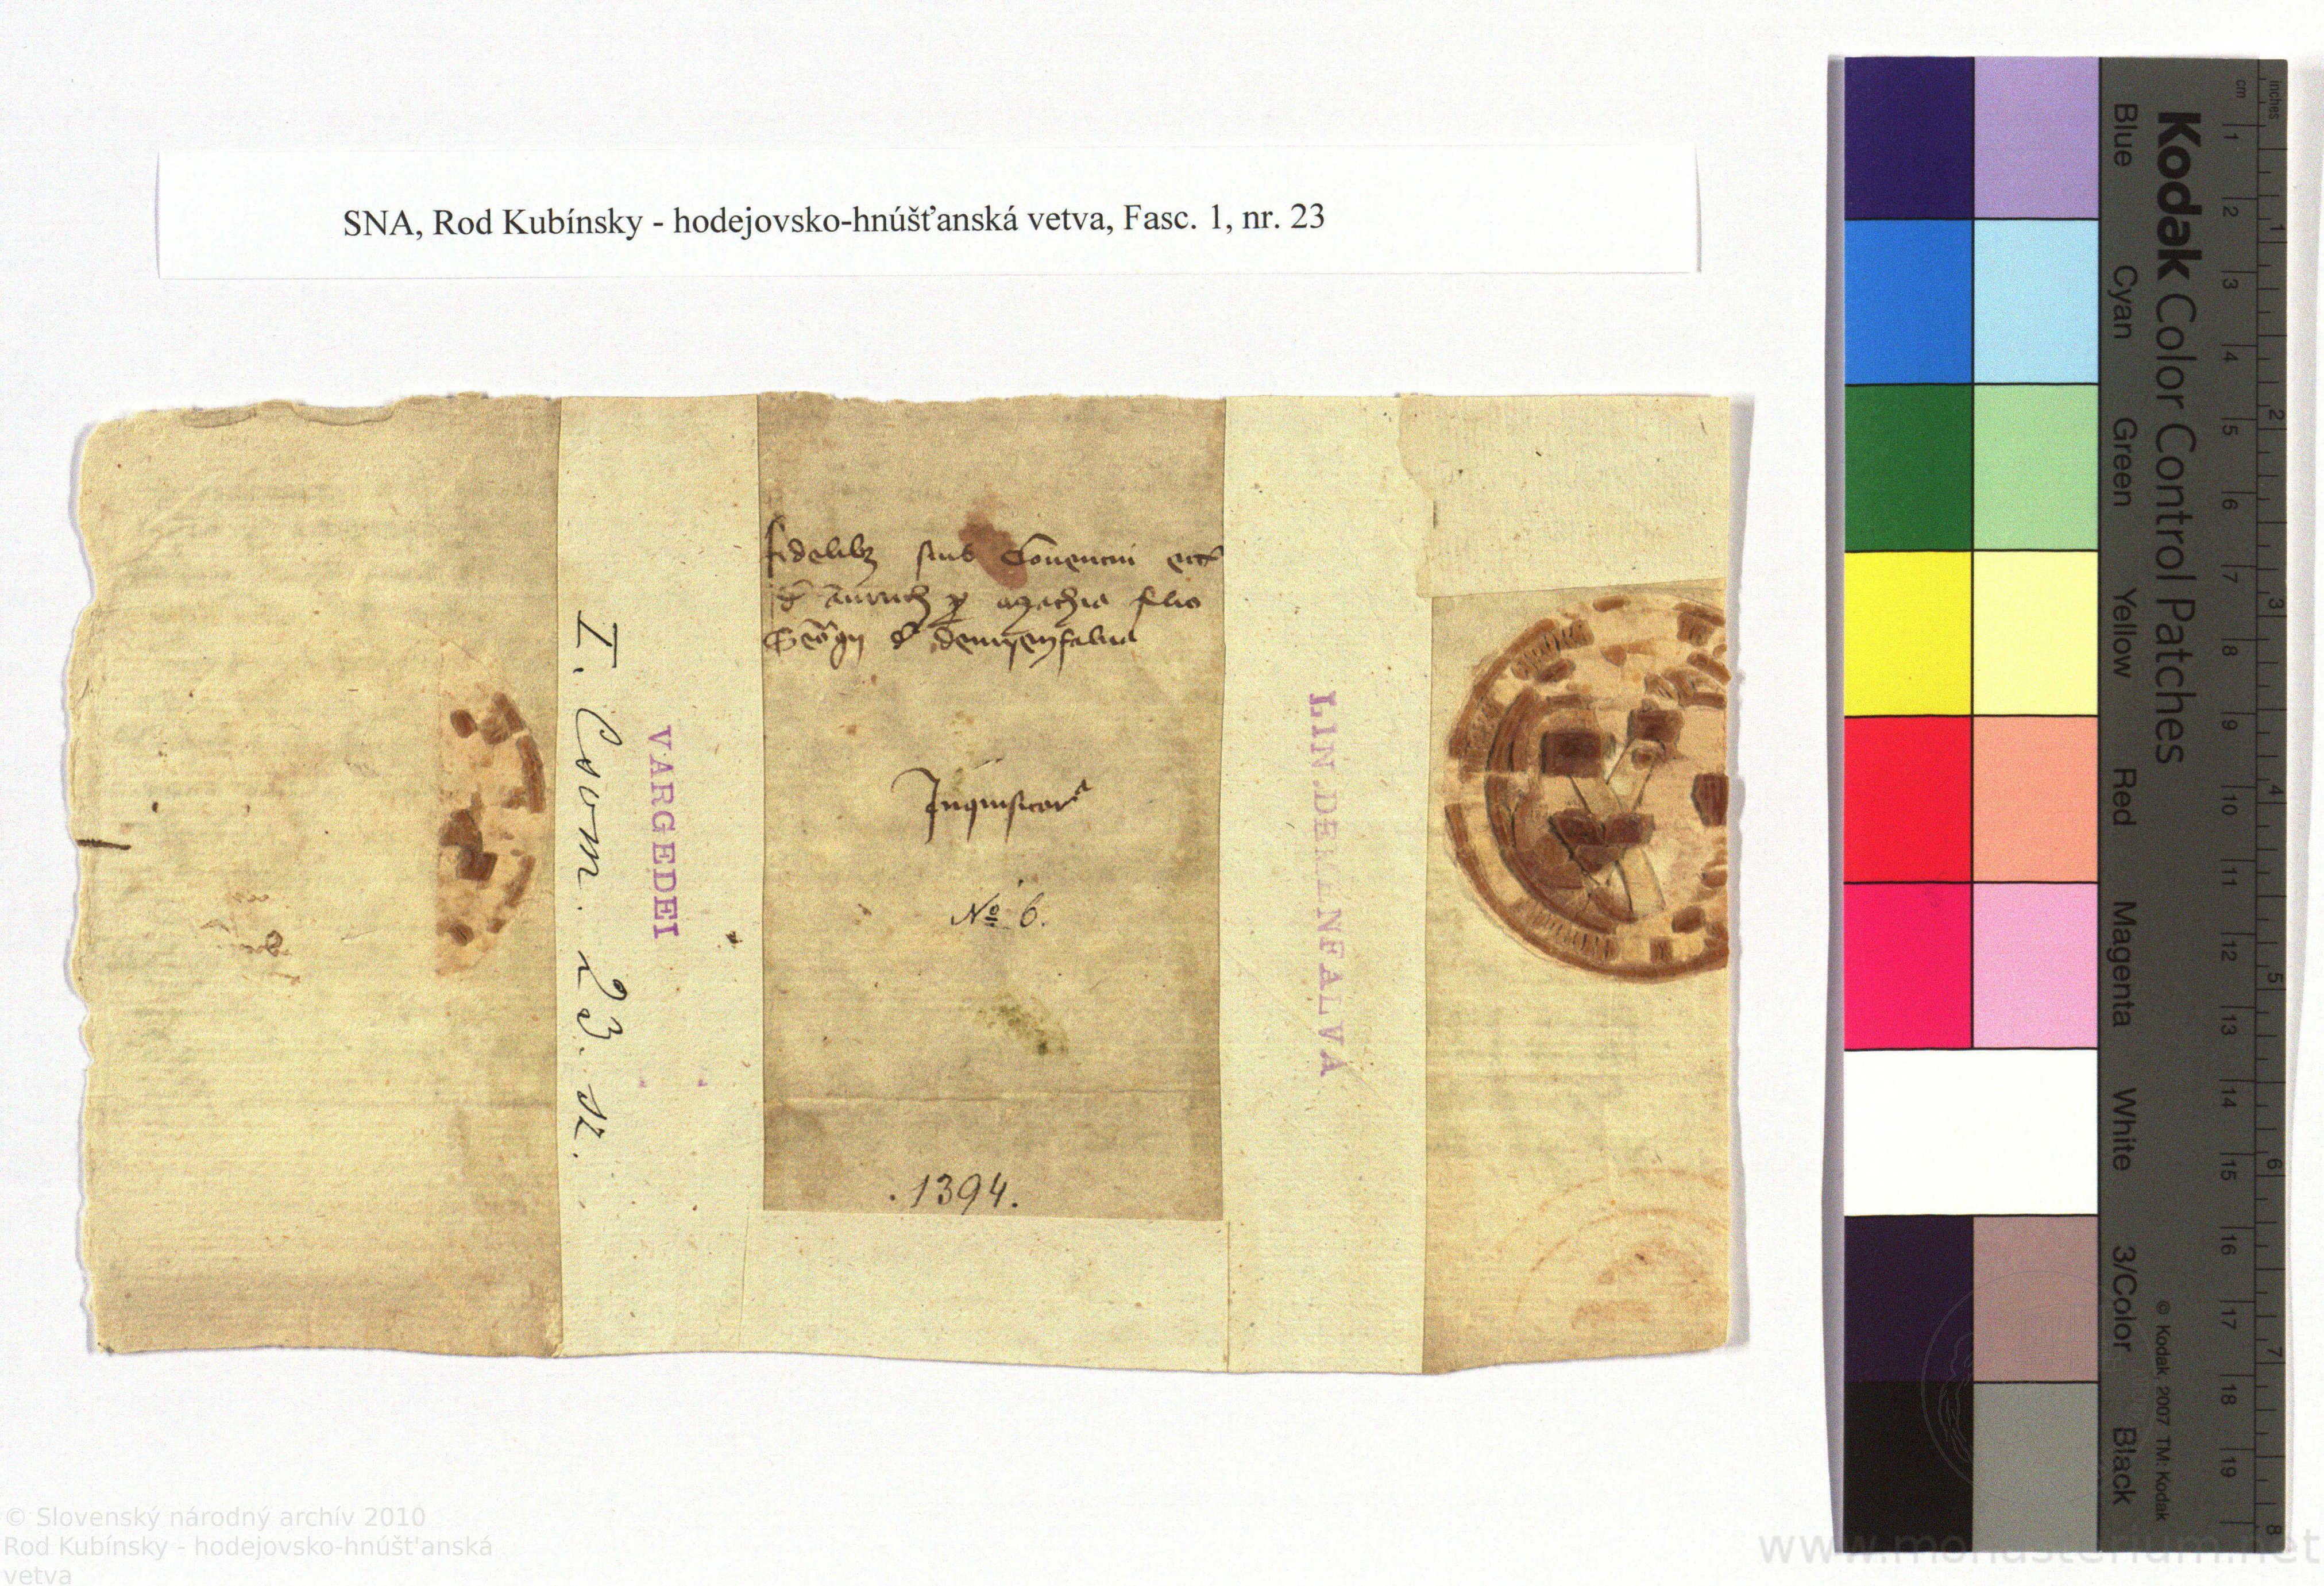 SNA, Rod Kubínsky - hodejovsko-hnúšťanská vetva, Fasc. 1, nr. 23
fidelib(us) suis Conventui
filio
Inquisitor
No 6.
.1394.
I. Corn. 23. sz.
VARGEDEI
LIN.DEMENFALVA
Kodak Color Control Patches
Blue Cyan Green Yellow Red Magenta White 3/Color Black
inches
cm
1 2 3 4 5 6 7 8 9 10 11 12 13 14 15 16 17 18 19
1 2 3 4 5 6 7 8
© Kodak, 2007 TM: Kodak
© Slovenský národný archív 2010
Rod Kubínsky - hodejovsko-hnúšťanská
vetva
www.monasterium.net